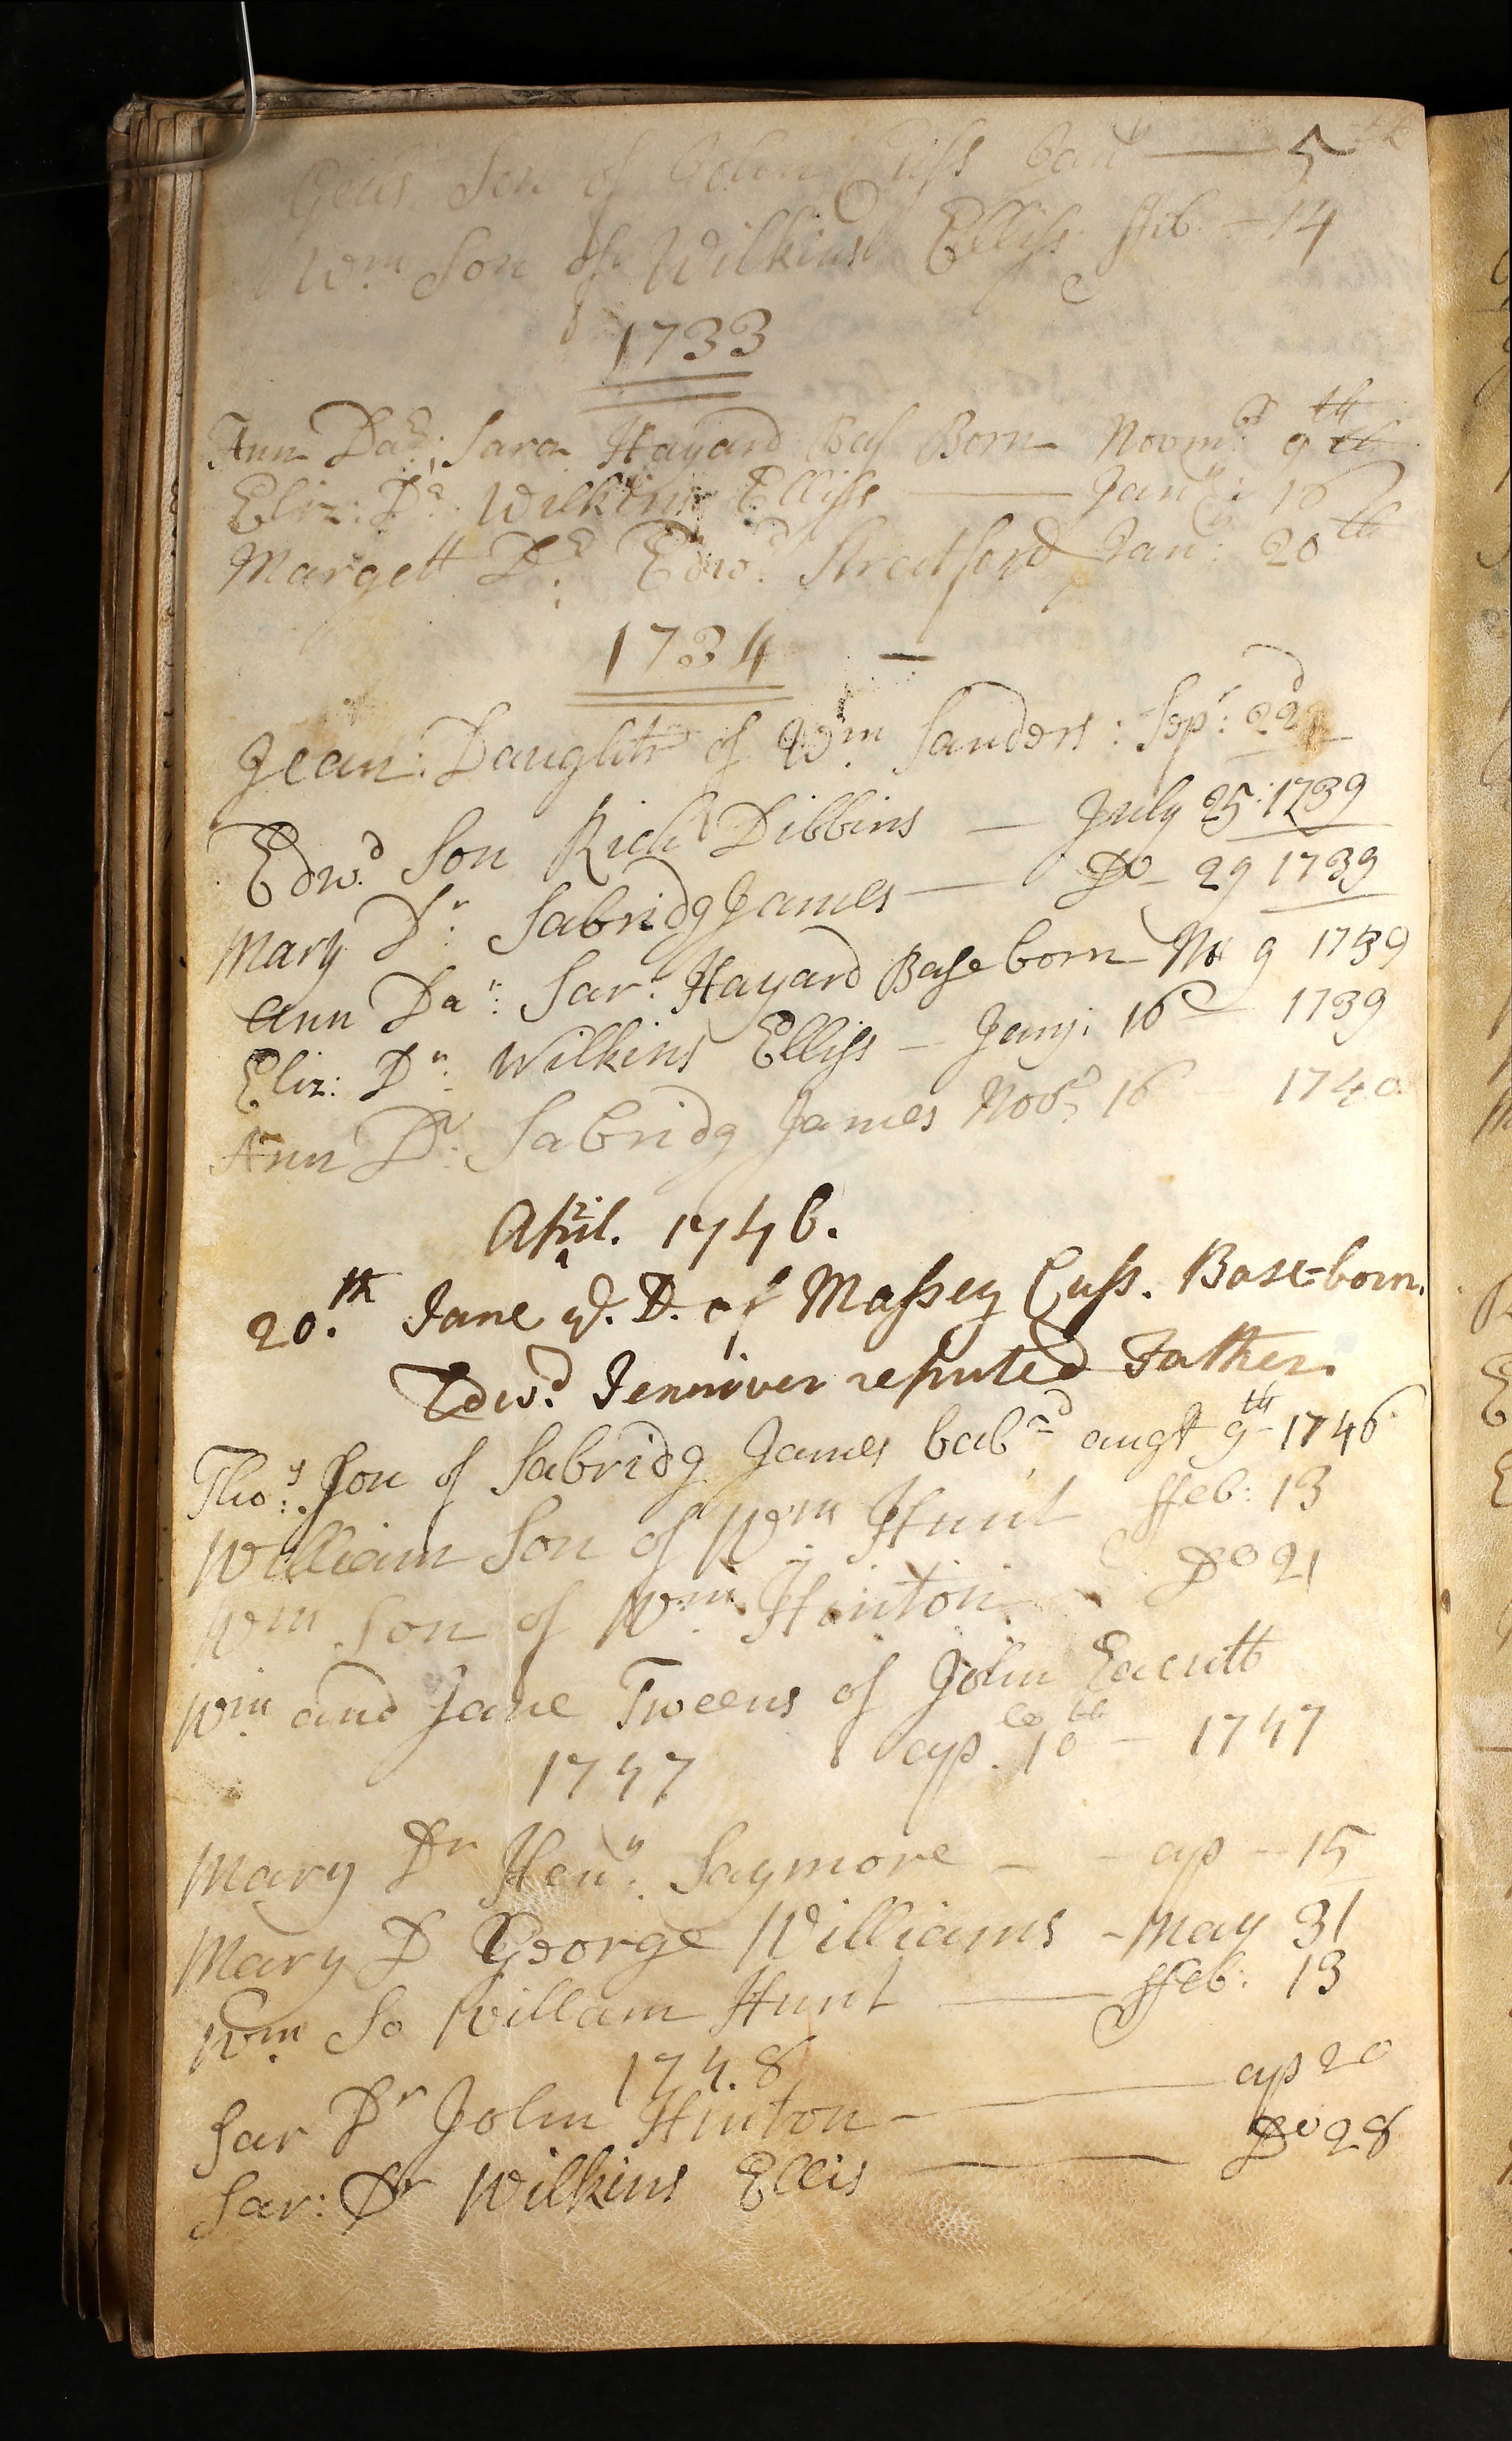 Son of John Cuss Jany — 5th
Wm Son of Wilkins Elliss ffeb: - 14
1733
Ann Dar: Sara Hayard Bas Born Novmbr 9th
Eliz: Dr: Wilkins Elliss — Jany: 16
Margett Dr: Edwd: Stredford Jany: 20th
1734 —
Jean: Daughter of Wm Sanders: Sepr: 22d
Edwd Son Richd Dibbins — July 25: 1739
Mary Dr: Sabridg James — Do - 29 1739
ann Dar: Sar: Hayard Base born 9 1739
Eliz: Dr: Wilkins Elliss — Jany: 16 1739
Ann Dr: Sabridg James Novr 16 - 1740
April. 1746.
20.th Jane ye. D. of Massey Cuss. Base=born.
Edwd. Jenniver reputed Father.
Thos: Son of Sabridg James babd augt 9th - 1746
William Son of Wm Hunt ffeb: 13
Wm Son of Wm. Hinton Do 21
Wm and Jane Tweens of John Eacutt
1747 ap. 10th - 1747
Mary Dr Heny: Saymore - - ap - 15
Mary D George Williams - May 31
Wm So Willam Hunt — ffeb: 13
174.8
Sar Dr John Hinton - — ap 20
Sar: Dr Wilkins Ellis — Do 28